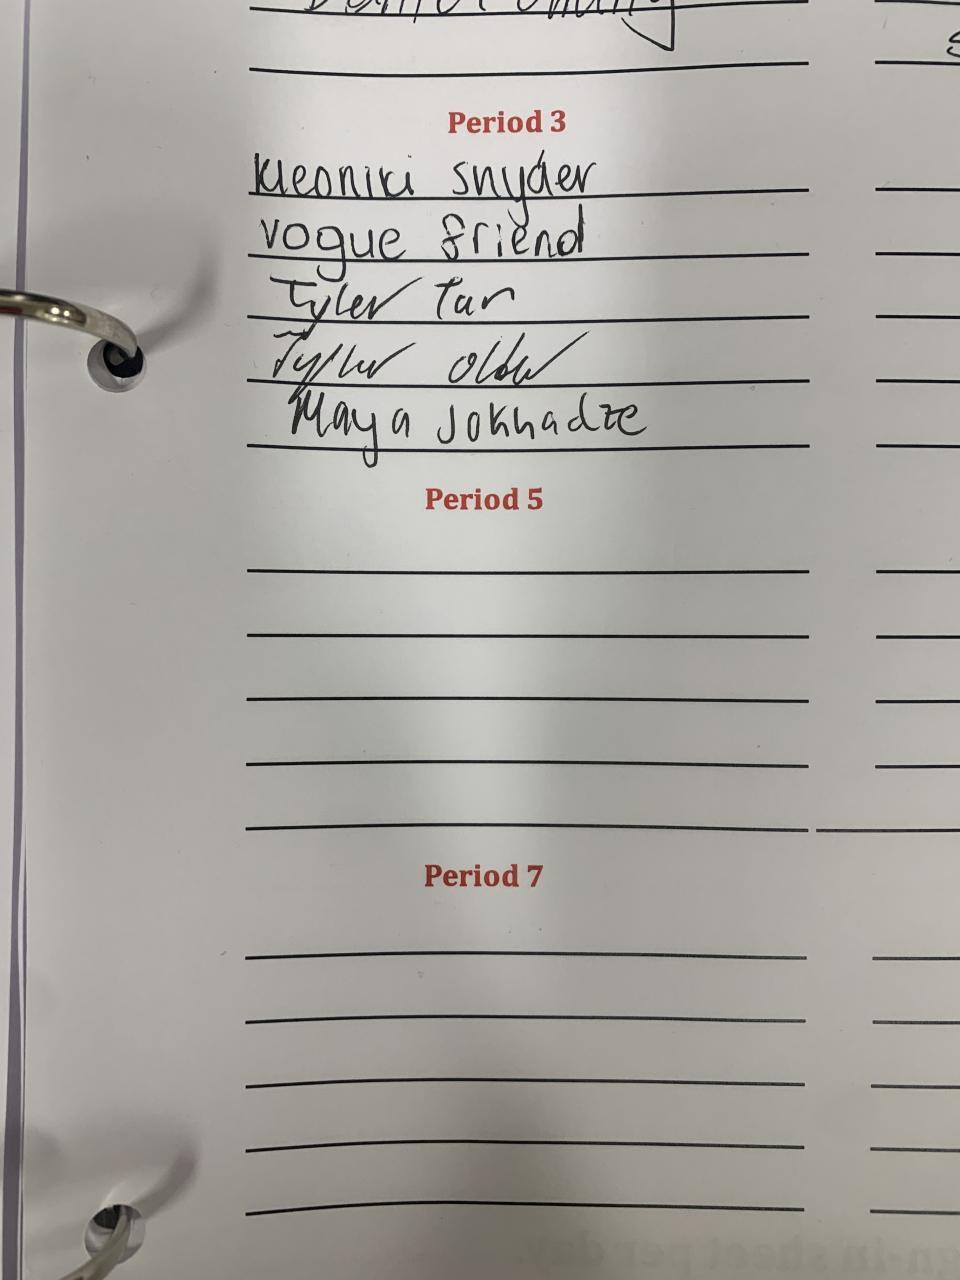 Period 3
Kleoniki Snyder
Vogue Friend
Tyler Tan
Tyler
Maya Jokhadze
Period 5
Period 7
sheet per day.